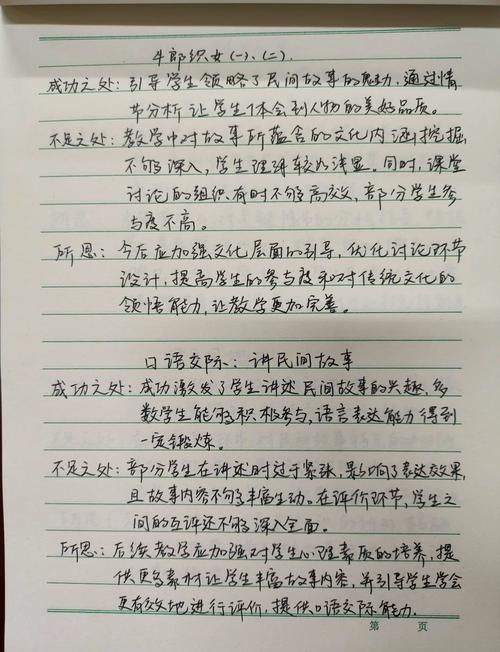 牛郎织女(一)、(二)
成功之处:引导学生领略了民间故事的魅力,通过情
节分析让学生体会到人物的美好品质。
不足之处:教学中对故事所蕴含的文化内涵挖掘
不够深入,学生理解较为浅显。同时,课堂
讨论的组织有时不够高效,部分学生参
与度不高。
所思:今后应加强文化层面的引导,优化讨论环节
设计,提高学生的参与度和对传统文化的
领悟能力,让教学更加完善。
口语交际:讲民间故事
成功之处:成功激发了学生讲述民间故事的兴趣,多
数学生能够积极参与,语言表达能力得到
一定锻炼。
不足之处:部分学生在讲述时过于紧张,影响了表达效果,
且故事内容不够丰富生动。在评价环节,学生之
间的互评还不够深入全面。
所思:后续教学应加强对学生心理素质的培养,提
供更多素材让学生丰富故事内容,并引导学生学会
更有效地进行评价,提供口语交际能力.
第 页